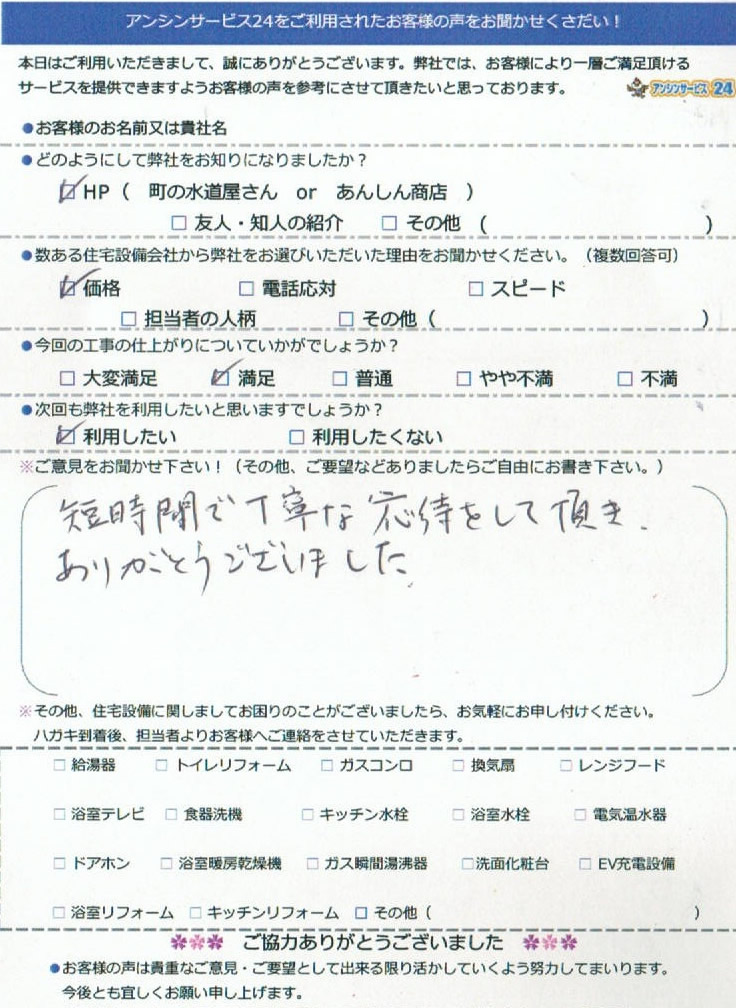 アンシンサービス24をご利用されたお客様の声をお聞かせくさだい！
本日はご利用いただきまして、誠にありがとうございます。弊社では、お客様により一層ご満足頂ける
サービスを提供できますようお客様の声を参考にさせて頂きたいと思っております。 アンシンサービス24
●お客様のお名前又は貴社名
●どのようにして弊社をお知りになりましたか？
☑HP（ 町の水道屋さん or あんしん商店 ）
□ 友人・知人の紹介 □ その他 （ ）
●数ある住宅設備会社から弊社をお選びいただいた理由をお聞かせください。（複数回答可）
☑価格 □ 電話応対 □ スピード
□ 担当者の人柄 □ その他（ ）
●今回の工事の仕上がりについていかがでしょうか？
□ 大変満足 ☑ 満足 □ 普通 □ やや不満 □ 不満
●次回も弊社を利用したいと思いますでしょうか？
☑利用したい □ 利用したくない
※ご意見をお聞かせ下さい！（その他、ご要望などありましたらご自由にお書き下さい。）
短時間で丁寧な応待をして頂き、
ありがとうございました
※その他、住宅設備に関しましてお困りのことがございましたら、お気軽にお申し付けください。
ハガキ到着後、担当者よりお客様へご連絡をさせていただきます。
□ 給湯器 □ トイレリフォーム □ ガスコンロ □ 換気扇 □ レンジフード
□ 浴室テレビ □ 食器洗機 □ キッチン水栓 □ 浴室水栓 □ 電気温水器
□ ドアホン □ 浴室暖房乾燥機 □ ガス瞬間湯沸器 □洗面化粧台 □ EV充電設備
□ 浴室リフォーム □ キッチンリフォーム □ その他（ ）
ご協力ありがとうございました
●お客様の声は貴重なご意見・ご要望として出来る限り活かしていくよう努力してまいります。
今後とも宜しくお願い申し上げます。